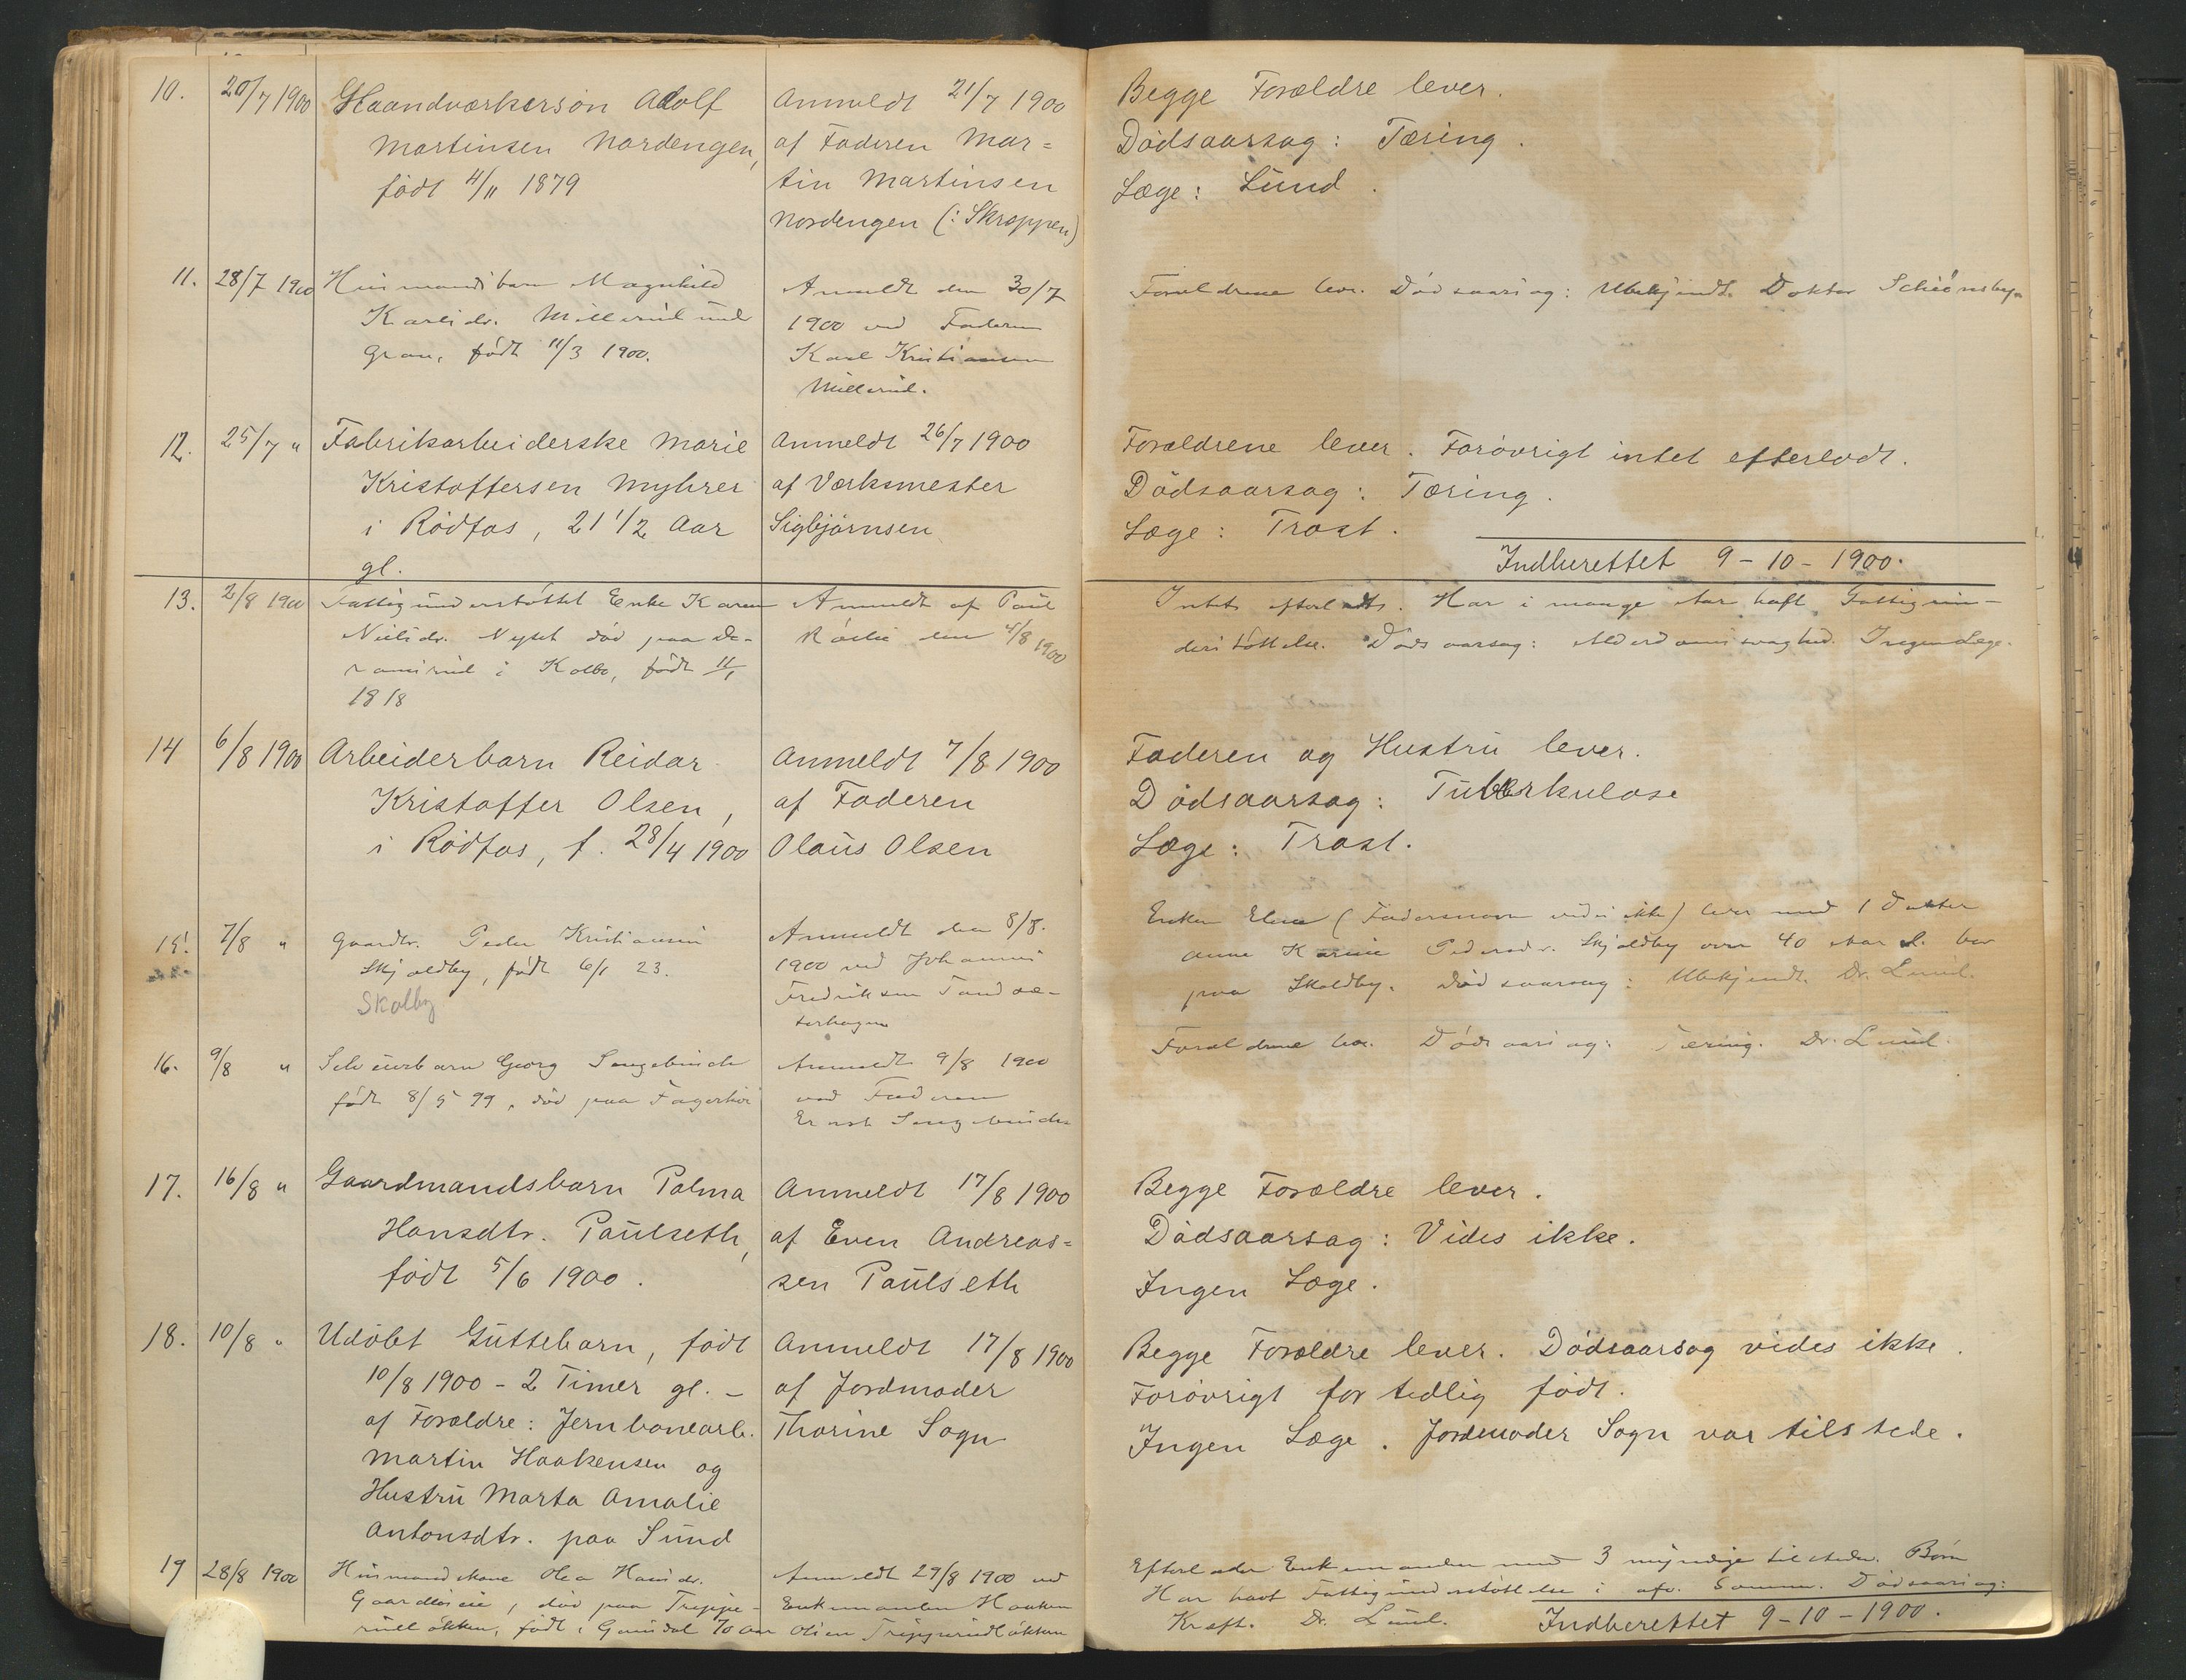 10. 20/7 1900 Haandværkersøn Adolf
Martinsen Nordengen,
født 4/11 1879
Anmeldt 21/7 1900
af Faderen Mar=
tin Martinsen
Nordengen (: Skroppen)
Begge Forældre lever.
Dödsaarsag: Tæring.
Læge: Lund.
11. 28/7 1900 Husmandsbarn Magnhild
Karlsdr. Millerud under
Gran, født 11/3 1900.
Anmeldt den 30/7
1900 ved Faderen
Karl Kristiansen
Millerud.
Forældrene lever. Dødsaarsag: Ubekjendt. Doktor
12. 25/7 " Fabrikarbeiderske Marie
Kristoffersen Myhrer
i Rödfos, 21 1/2 Aar
gl.
Anmeldt 26/7 1900
af Værksmester
Sigbjörnsen
Forældrene lever. Forövrigt intet efterladt.
Dödsaarsag: Tæring.
Læge: Trost.
Indberettet 9-10-1900.
13. 2/8 1900 Fattigunderstøttet Enke Karen
Nilsdr. Nyset død paa
i Kolbo, født 11/1
1818
Anmeldt af Paul
Røslie den 4/8 1900
Intet efterladt. Har i mange Aar haft Fattigun-
derstøttelse. Dødsaarsag: Alderdomssvaghed. Ingen Læge.
14 6/8 1900 Arbeiderbarn Reidar
Kristoffer Olsen,
i Rödfos, f. 28/4 1900
Anmeldt 7/8 1900
af Faderen
Olaus Olsen
Faderen og Hustru lever.
Dödsaarsag: Tuberkulose
Læge: Trost.
15. 7/8 " Gaardbr. Peder Kristiansen
Skjoldby, født 6/1 23.
Skolby
Anmeldt den 8/8.
1900 ved Johannes
Fredriksen
Enken (Fadersnavn vides ikke) lever med 1 Datter
Anne Karine Pedersdr. Skjoldby over 40 Aar gl. bor
paa Skoldby. Dødsaarsag: Ubekjendt. Dr. Lund.
16. 9/8 " Georg
født 8/5 99, død paa
Anmeldt 9/8 1900
ved Faderen
Ernst
Forældrene lever. Dødsaarsag: Tæring. Dr. Lund.
17. 16/8 " Gaardmandsbarn Palma
Hansdtr. Paulseth,
født 5/6 1900.
Anmeldt 17/8 1900
af Even Andreas=
sen Paulseth
Begge Forældre lever.
Dödsaarsag: Vides ikke.
Ingen Læge.
18. 10/8 " Udöbt Guttebarn, født
10/8 1900 - 2 Timer gl. -
af Forældre: Jernbanearb.
Martin Haakensen og
Hustru Marta Amalie
Antonsdtr. paa Sund
Anmeldt 17/8 1900
af Jordmoder
Thorine Sogn
Begge Forældre lever. Dödsaarsag vides ikke.
Forövrigt for tidlig födt.
Ingen Læge. Jordmoder Sogn var tilstede.
19 28/8 1900 Husmandskone Olea Hansdr.
død paa
født i Gausdal 70 Aar
Anmeldt 29/8 1900 ved
Enkemanden Haaken
Olsen
Efterlader Enkemanden med 3 myndige tilstede. Børn
Har havt Fattigunderstøttelse i Dødsaarsag:
Kræft. Dr. Lund.
Indberettet 9-10-1900.